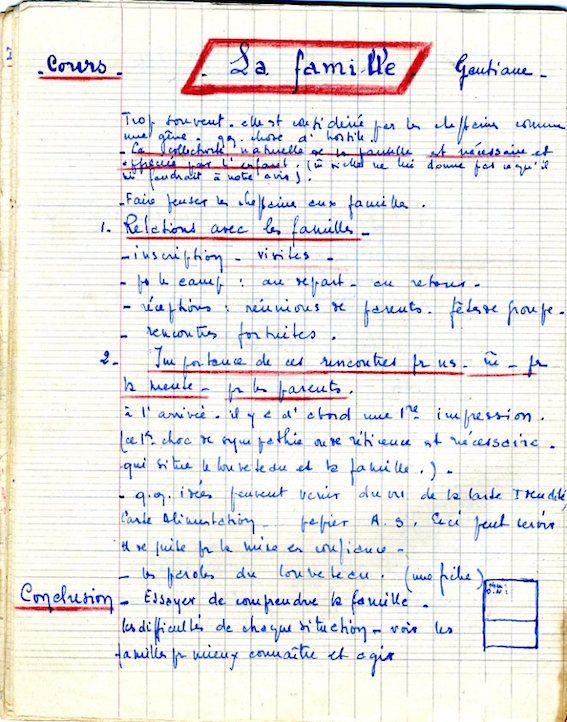 Cours La famille Gentiane
Trop souvent. elle est considérée par les cheftaines comme
une gêne. qq chose d'hostile.
La collectivité naturelle de la famille est nécessaire et
par l'enfant. (si elle ne lui donne pas ce qu'il
lui faudrait à notre avis).
Faire penser les cheftaines aux familles.
1. Relations avec les familles
- inscription - visites -
- pr le camp : au départ - au retour -
- réceptions : réunions de parents. fêtes de groupe.
- rencontres fortuites.
2. Importance de ces rencontres pr ns. - pr
la meute - pr les parents.
à l'arrivée. il y a d'abord une 1re impression.
(ce 1er choc de sympathie ou de réticence est nécessaire.
qui situe le louveteau et la famille.) -
- qq. idées peuvent venir du vu de la carte d'identité,
Carte Alimentation - papier A.S. Ceci peut servir
de suite pr la mise en confiance -
- les paroles du louveteau. (une fiche)
Conclusion - Essayer de comprendre la famille.
les difficultés de chaque situation - voir les
familles pr mieux connaître et agir